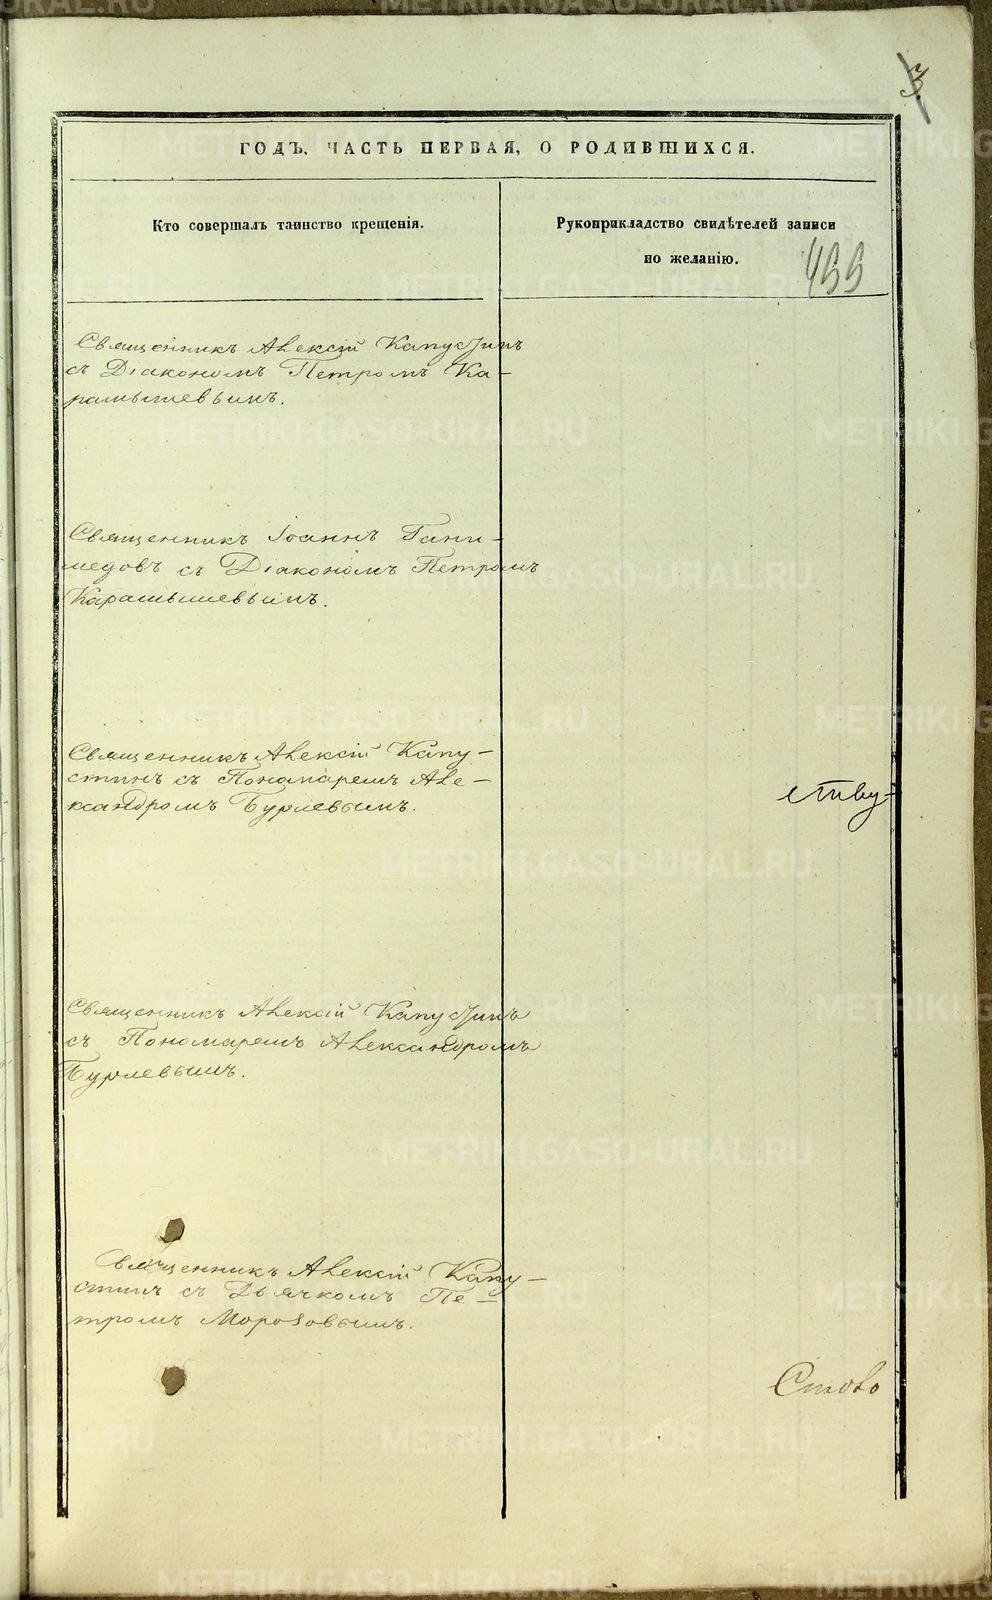 3
ГОДЪ, ЧАСТЬ ПЕРВАЯ, О РОДИВШИХСЯ.
Кто совершалъ таинство крещенія.
Рукоприкладство свидѣтелей записи
по желанію.
499
Священникъ Алексій Капустинъ
съ Діакономъ Петромъ Ка-
рамышевымъ.
Священникъ Іоаннъ Гани-
медовъ съ Діакономъ Петромъ
Карамышевымъ.
Священникъ Алексій Капу-
стинъ съ Пономаремъ Але-
ксандромъ Бурлевымъ.
Священникъ Алексій Капустинъ
съ Пономаремъ Александромъ
Бурлевымъ.
Священникъ Алексій Капу-
стинъ съ Дьячкомъ Пе-
тромъ Морозовымъ.
METRIKI.GASO-URAL.RU